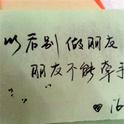 以后别做朋友
朋友不能牵手